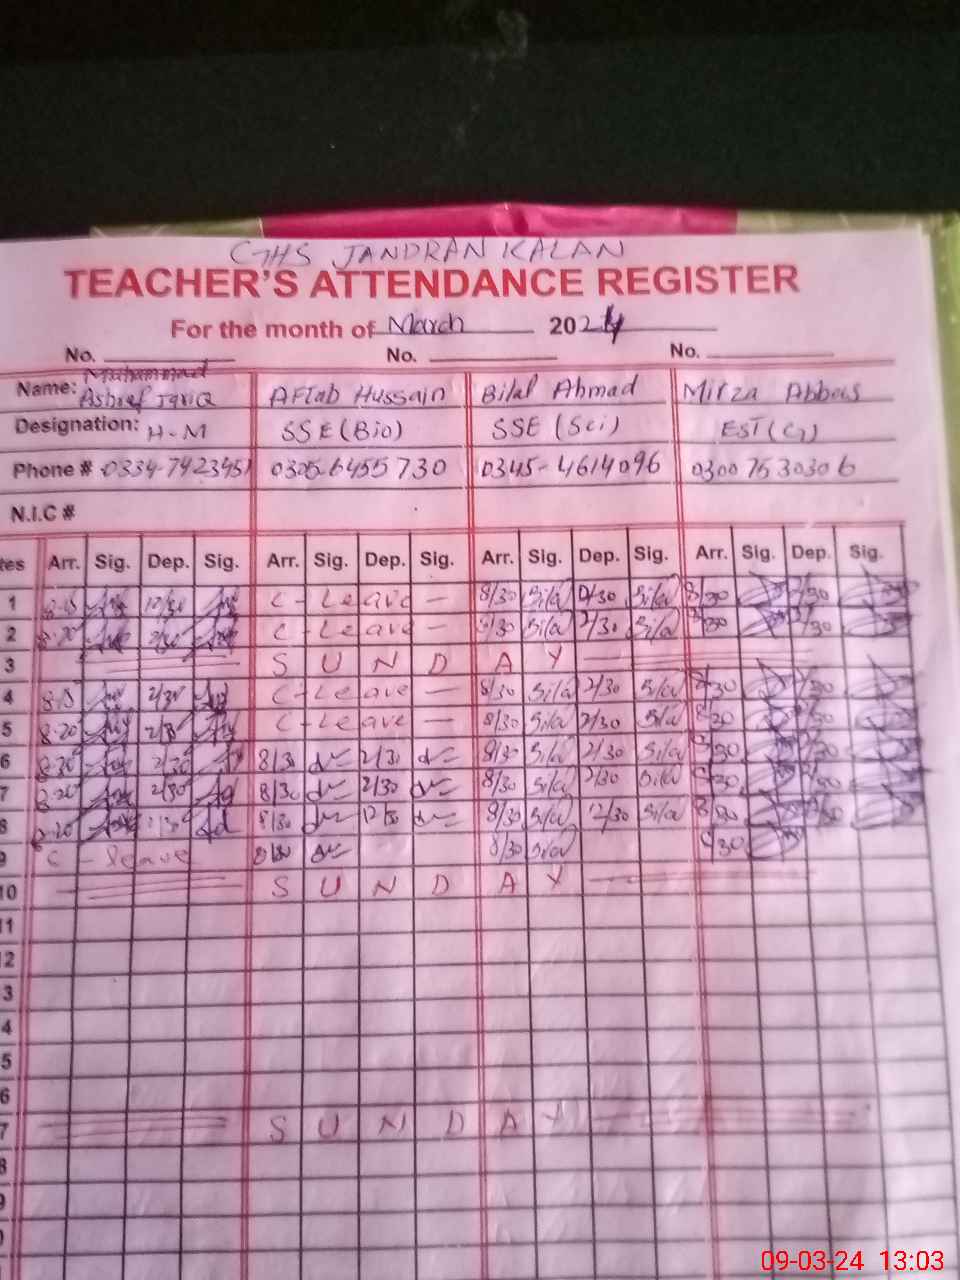 GHS JANDRAN KALAN
TEACHER'S ATTENDANCE REGISTER
For the month of March 2024
No. No. No.
Name: Muhammad Ashraf Tariq AFtab Hussain Bilal Ahmad Mirza Abbas
Designation: H-M SSE (Bio) SSE (Sci) EST (G)
Phone # 0334-7423451 0305-6455730 0345-4614096 0300 7530306
N.I.C #
tes Arr. Sig. Dep. Sig. Arr. Sig. Dep. Sig. Arr. Sig. Dep. Sig. Arr. Sig. Dep. Sig.
1 8-15 12/30 C-Leave — 8/30 Bilal 12/30 Bilal 8/30 12/30
2 8-20 2/30 C-Leave — 8/30 Bilal 2/30 Bilal 8/30 2/30
3 S U N D A Y
4 8-15 2/30 C-Leave — 8/30 Bilal 2/30 Bilal 8/30 2/30
5 8-20 2/30 C-Leave — 8/30 Bilal 2/30 Bilal 8/30 2/30
6 8-20 2/30 8/30 2/30 8/30 Bilal 2/30 Bilal 8/30 2/30
7 8-20 2/30 8/30 2/30 8/30 Bilal 2/30 Bilal 8/30 2/30
8 8-20 8/30 12/30 8/30 Bilal 12/30 Bilal 8/30
9 C-leave 8/30 8/30 Bilal 8/30
10 S U N D A Y
11
12
3
4
5
6
7 S U N D A Y
8
9
0
09-03-24 13:03